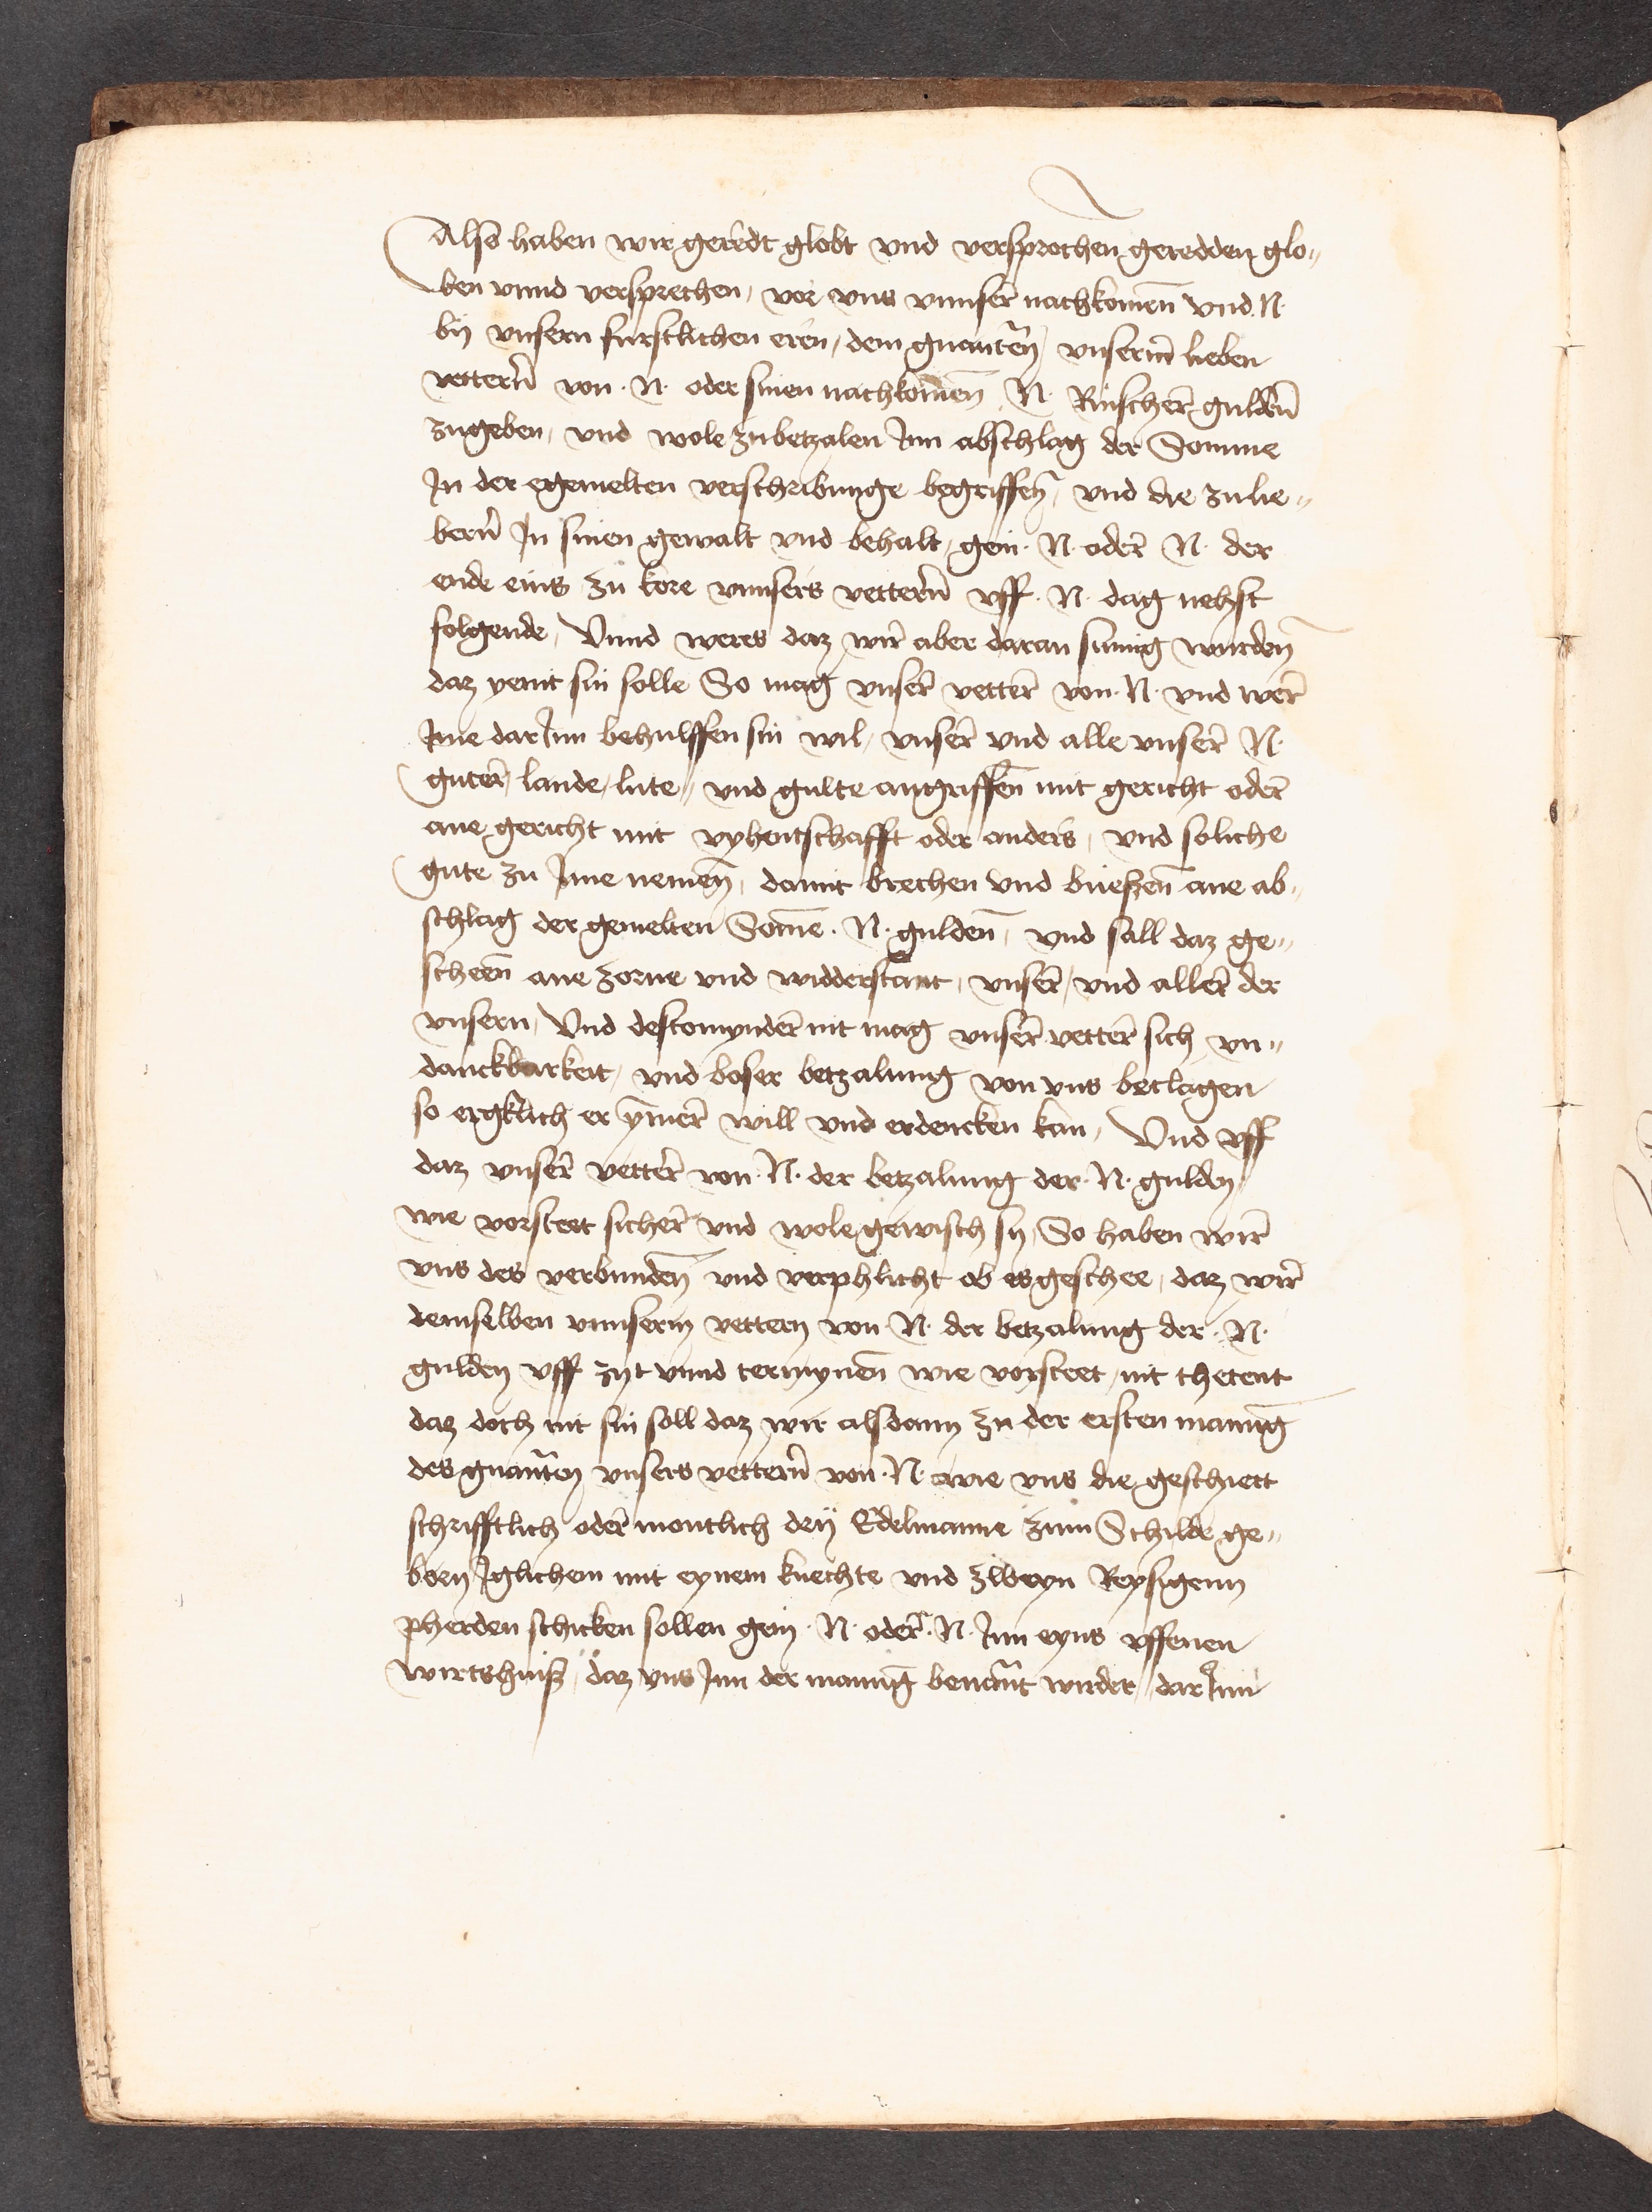 Also haben wir geredt globt vnd versprochen geredden glo„
ben vnnd versprechen, vor vns vnnser̄ nachkomen̄ vnd N.
bij vnsern furstlichen eren, dem gnanten̄ vnserm̄ lieben
vettern̄ von · N · oder sinen nachkomen̄ N. Rinscher̄ gulden̄
zugeben, vnd wole zubetzalen Jnn abschlag der Somme
Jn der egemelten verschribunge begriffen̄, vnd die zulie„
bern̄ Jn sinen gewalt vnd behalt, gein · N · oder̄ N · der
ende eins zu kore vnnsers vettern̄ vff · N · dag nehst
folgende, Vnnd weres daz wir̄ aber daran sumig wurden̄
daz yenit sin solle So mag vnser̄ vetter̄ von · N · vnd wer̄
Jme darJnn behulffen sin wil, vnser̄ vnd alle vnser̄ N.
guter̄, lande, lute, vnd gulte angriffen̄ mit gericht oder̄
ane gericht mit vyhentschafft oder anders, vnd soliche
gute zu Jme nemen̄, damit brechen vnd bueßen̄ ane ab„
schlag der gemelten Som̄e · N · gulden̄, vnd sall daz ge„
scheen̄ ane zorne vnd widderstant, vnser̄, vnd aller̄ der
vnsern, Vnd destomynder̄ nit mag vnser̄ vetter̄ sich vn„
danckbarkeit, vnd boser betzalung von vns beclagen
so ergklich er ym̄er̄ will vnd erdencken kan, Vnd vff
daz vnser̄ vetter̄ von · N · der betzalung der · N · gulden,
wie vorsteet sicher̄ vnd wole gewisch sij, So haben wir̄
vns des verbunden̄ vnd verphlicht ob es geschee, daz wir̄
demselben vnnserm vettern von N · der betzalung der · N ·
gulden vff zijt vnnd termynen̄ wie vorsteet, nit thetent
daz doch nit sin soll daz wir alsdann zu der ersten manuḡ
des gnan̄ten vnsers vettern̄ von · N · wie vns die geschiett
schrifftlich oder̄ montlich drij Edelmanne zum Schilde ge„
born Jglichem mit eynem knechte vnd zweyn Reysigenn
pherden schicken sollen gein · N · oder̄ · N · Jnn eyns vffenen
wirtshuß, daz vns Jnn der manuḡ benan̄t wirdet, darJnn